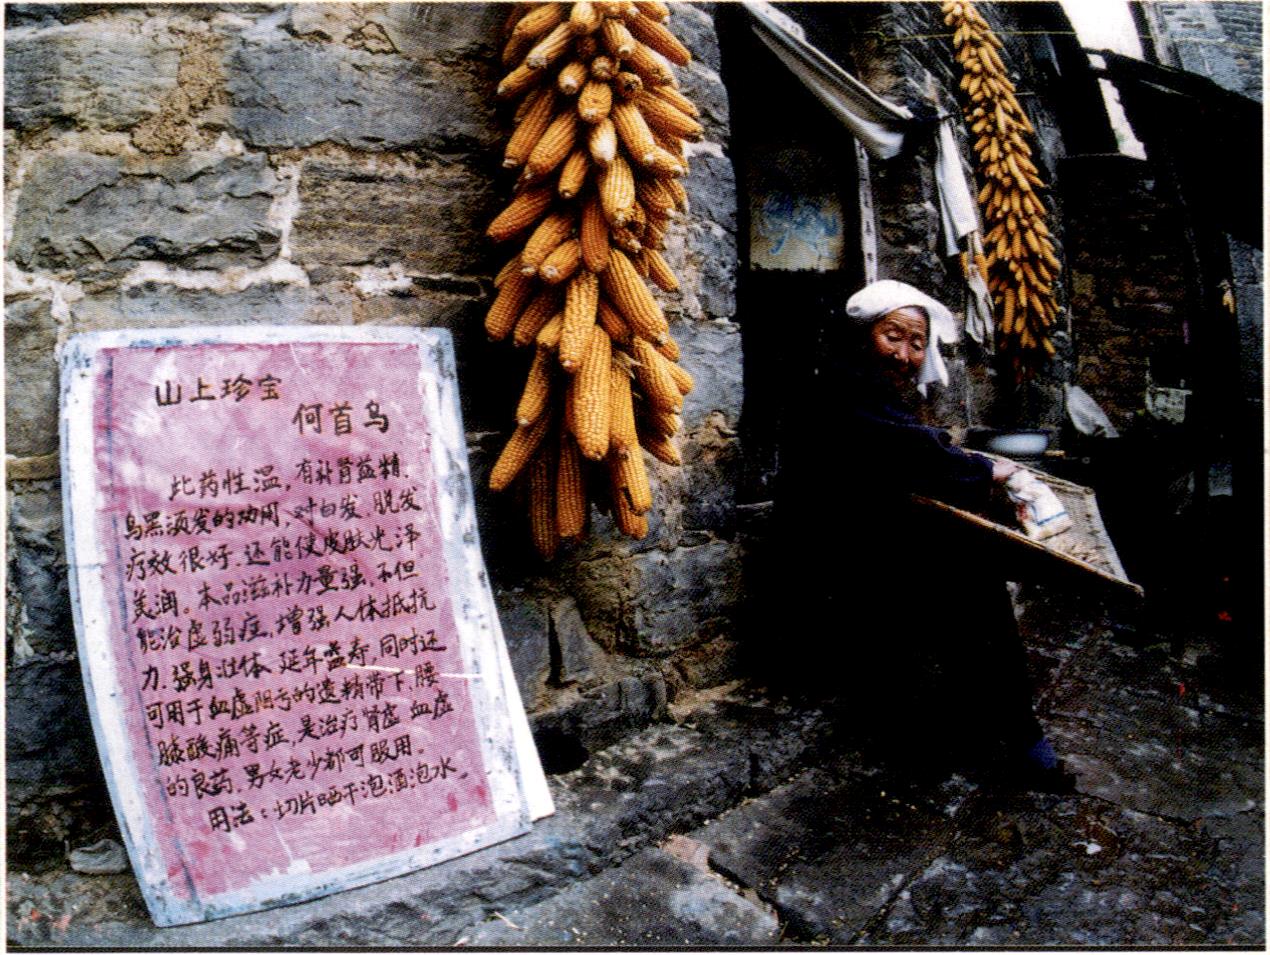 山上珍宝
何首乌
此药性温，有补肾益精、
乌黑须发的功用，对白发、脱发
疗效很好，还能使皮肤光泽
美润。本品滋补力量强，不但
能治虚弱症，增强人体抵抗
力，强身壮体、延年益寿，同时还
可用于血虚阴亏的遗精带下、腰
膝酸痛等症，是治疗肾虚、血虚
的良药，男女老少都可服用。
用法：切片晒干泡酒泡水。